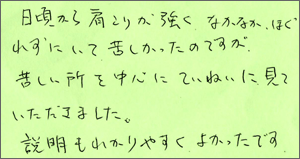 日頃から肩こりが強く、なかなか、ほぐ
れずにいて苦しかったのですが、
苦しい所を中心にていねいに見て
いただきました。
説明もわかりやすく、よかったです